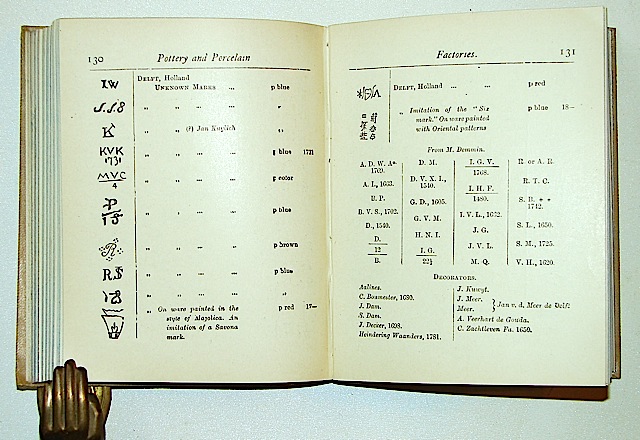 130
Pottery and Porcelain
DELFT, Holland
I.W UNKNOWN MARKS ... p blue
J.J.8 „ „ ... „ „
K „ „ (?) Jan Kuylich „
KVK 1731 „ „ ... „ p blue 1721
MVC 4 „ „ ... „ p color
P 15 „ „ ... „ p blue
R „ „ ... „ p brown
R.S „ „ ... „ p blue
„ „ ... „ „
„ On ware painted in the p red 17—
style of Majolica. An
imitation of a Savona
mark.
Factories.
131
DELFT, Holland ... ... p red
„ Imitation of the "Six p blue 18—
mark." On ware painted
with Oriental patterns
From M. Demmin.
A. D. W. A°
1769.
A. I., 1663.
B. P.
B. V. S., 1702.
D., 1540.
D.
12
B.
D. M.
D. V. X. I.,
1540.
G. D., 1605.
G. V. M.
H. N. I.
I. G.
22½
I. G. V.
1768.
I. H. F.
1480.
I. V. L., 1632.
J. G.
J. V. L.
M. Q.
R or A. R.
R. T. C.
S. R. * *
1742.
S. L., 1650.
S. M., 1725.
V. H., 1620.
DECORATORS.
Aalines.
C. Bosmester, 1690.
J. Dam.
S. Dam.
J. Decker, 1698.
Heindering Waanders, 1781.
J. Kuwyt.
J. Meer.
Meer. } Jan v. d. Meer de Delft
A. Veerhart de Gouda.
C. Zachtleven Fa. 1650.